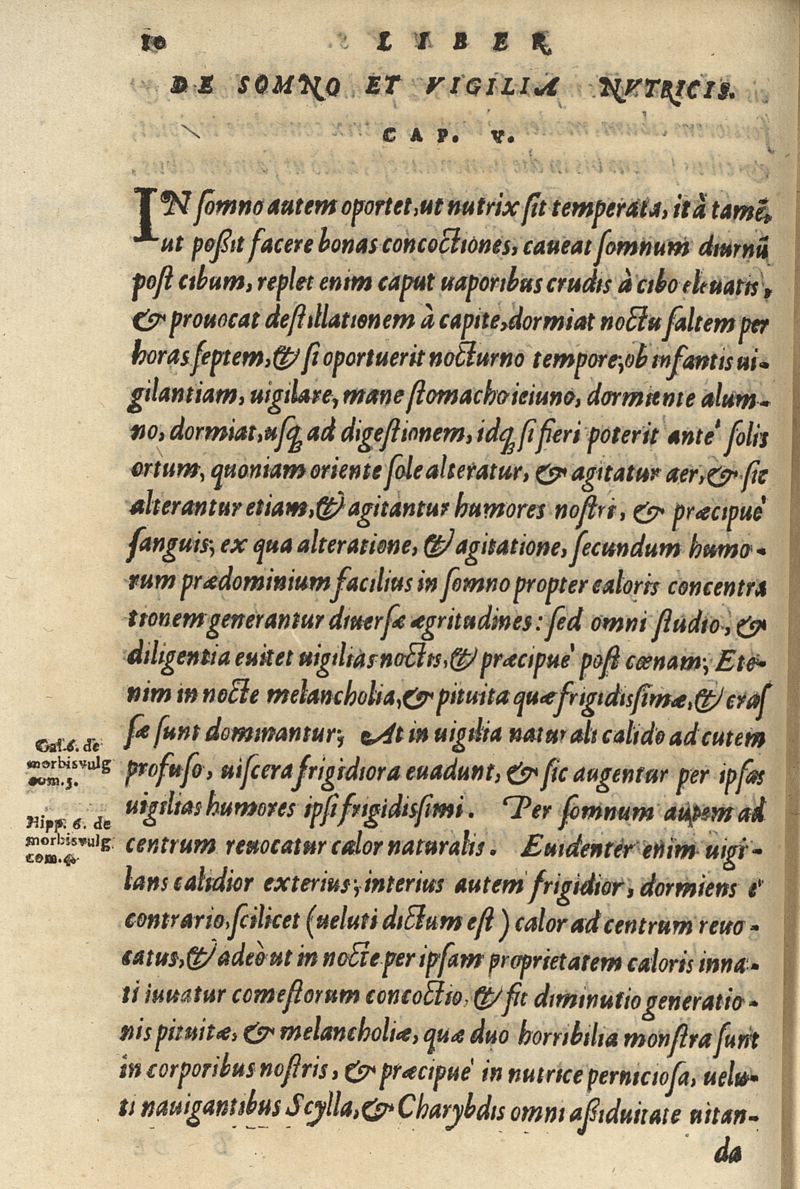 10 LIBER
DE SOMNO ET VIGILIA NVTRICIS.
CAP. V.
IN ſomno autem oportet, ut nutrix ſit temperata, ità tamẽ,
ut poßit facere bonas concoctiones, caueat ſomnum diurnũ
poſt cibum, replet enim caput uaporibus crudis à cibo eleuatis,
& prouocat deſtillationem à capite, dormiat noctu ſaltem per
horas ſeptem, & ſi oportuerit nocturno tempore, ob infantis ui-
gilantiam, uigilare, mane ſtomacho ieiuno, dormiente alum-
no, dormiat, uſq; ad digeſtionem, idq; ſi fieri poterit antè ſolis
ortum, quoniam oriente ſole alteratur, & agitatur aer, & ſic
alterantur etiam, & agitantur humores noſtri, & præcipuè
ſanguis, ex qua alteratione, & agitatione, ſecundum humo-
rum prædominium facilius in ſomno propter caloris concentra
tionem generantur diuerſæ ægritudines: ſed omni ſtudio, &
diligentia euitet uigilias noctis, & præcipuè poſt cœnam, Ete-
nim in nocte melancholia, & pituita quæ frigidiſſimæ, & craſ
ſæ ſunt dominantur; At in uigilia naturali calido ad cutem
profuſo, uiſcera frigidiora euadunt, & ſic augentur per ipſas
uigilias humores ipſi frigidiſſimi. Per ſomnum autem ad
centrum reuocatur calor naturalis. Euidenter enim uigi-
lans calidior exterius, interius autem frigidior, dormiens è
contrario, ſcilicet (ueluti dictum eſt) calor ad centrum reuo-
catus, & adeò ut in nocte per ipſam proprietatem caloris inna-
ti iuuatur comeſtorum concoctio, & fit diminutio generatio-
nis pituitæ, & melancholiæ, quæ duo horribilia monſtra ſunt
in corporibus noſtris, & præcipuè in nutrice pernicioſa, uelu-
ti nauigantibus Scylla, & Charybdis omni aßiduitate uitan-
da
Gal. 6. de
morbis vulg
com. 5.
Hipp. 6. de
morbis vulg.
com. 4.